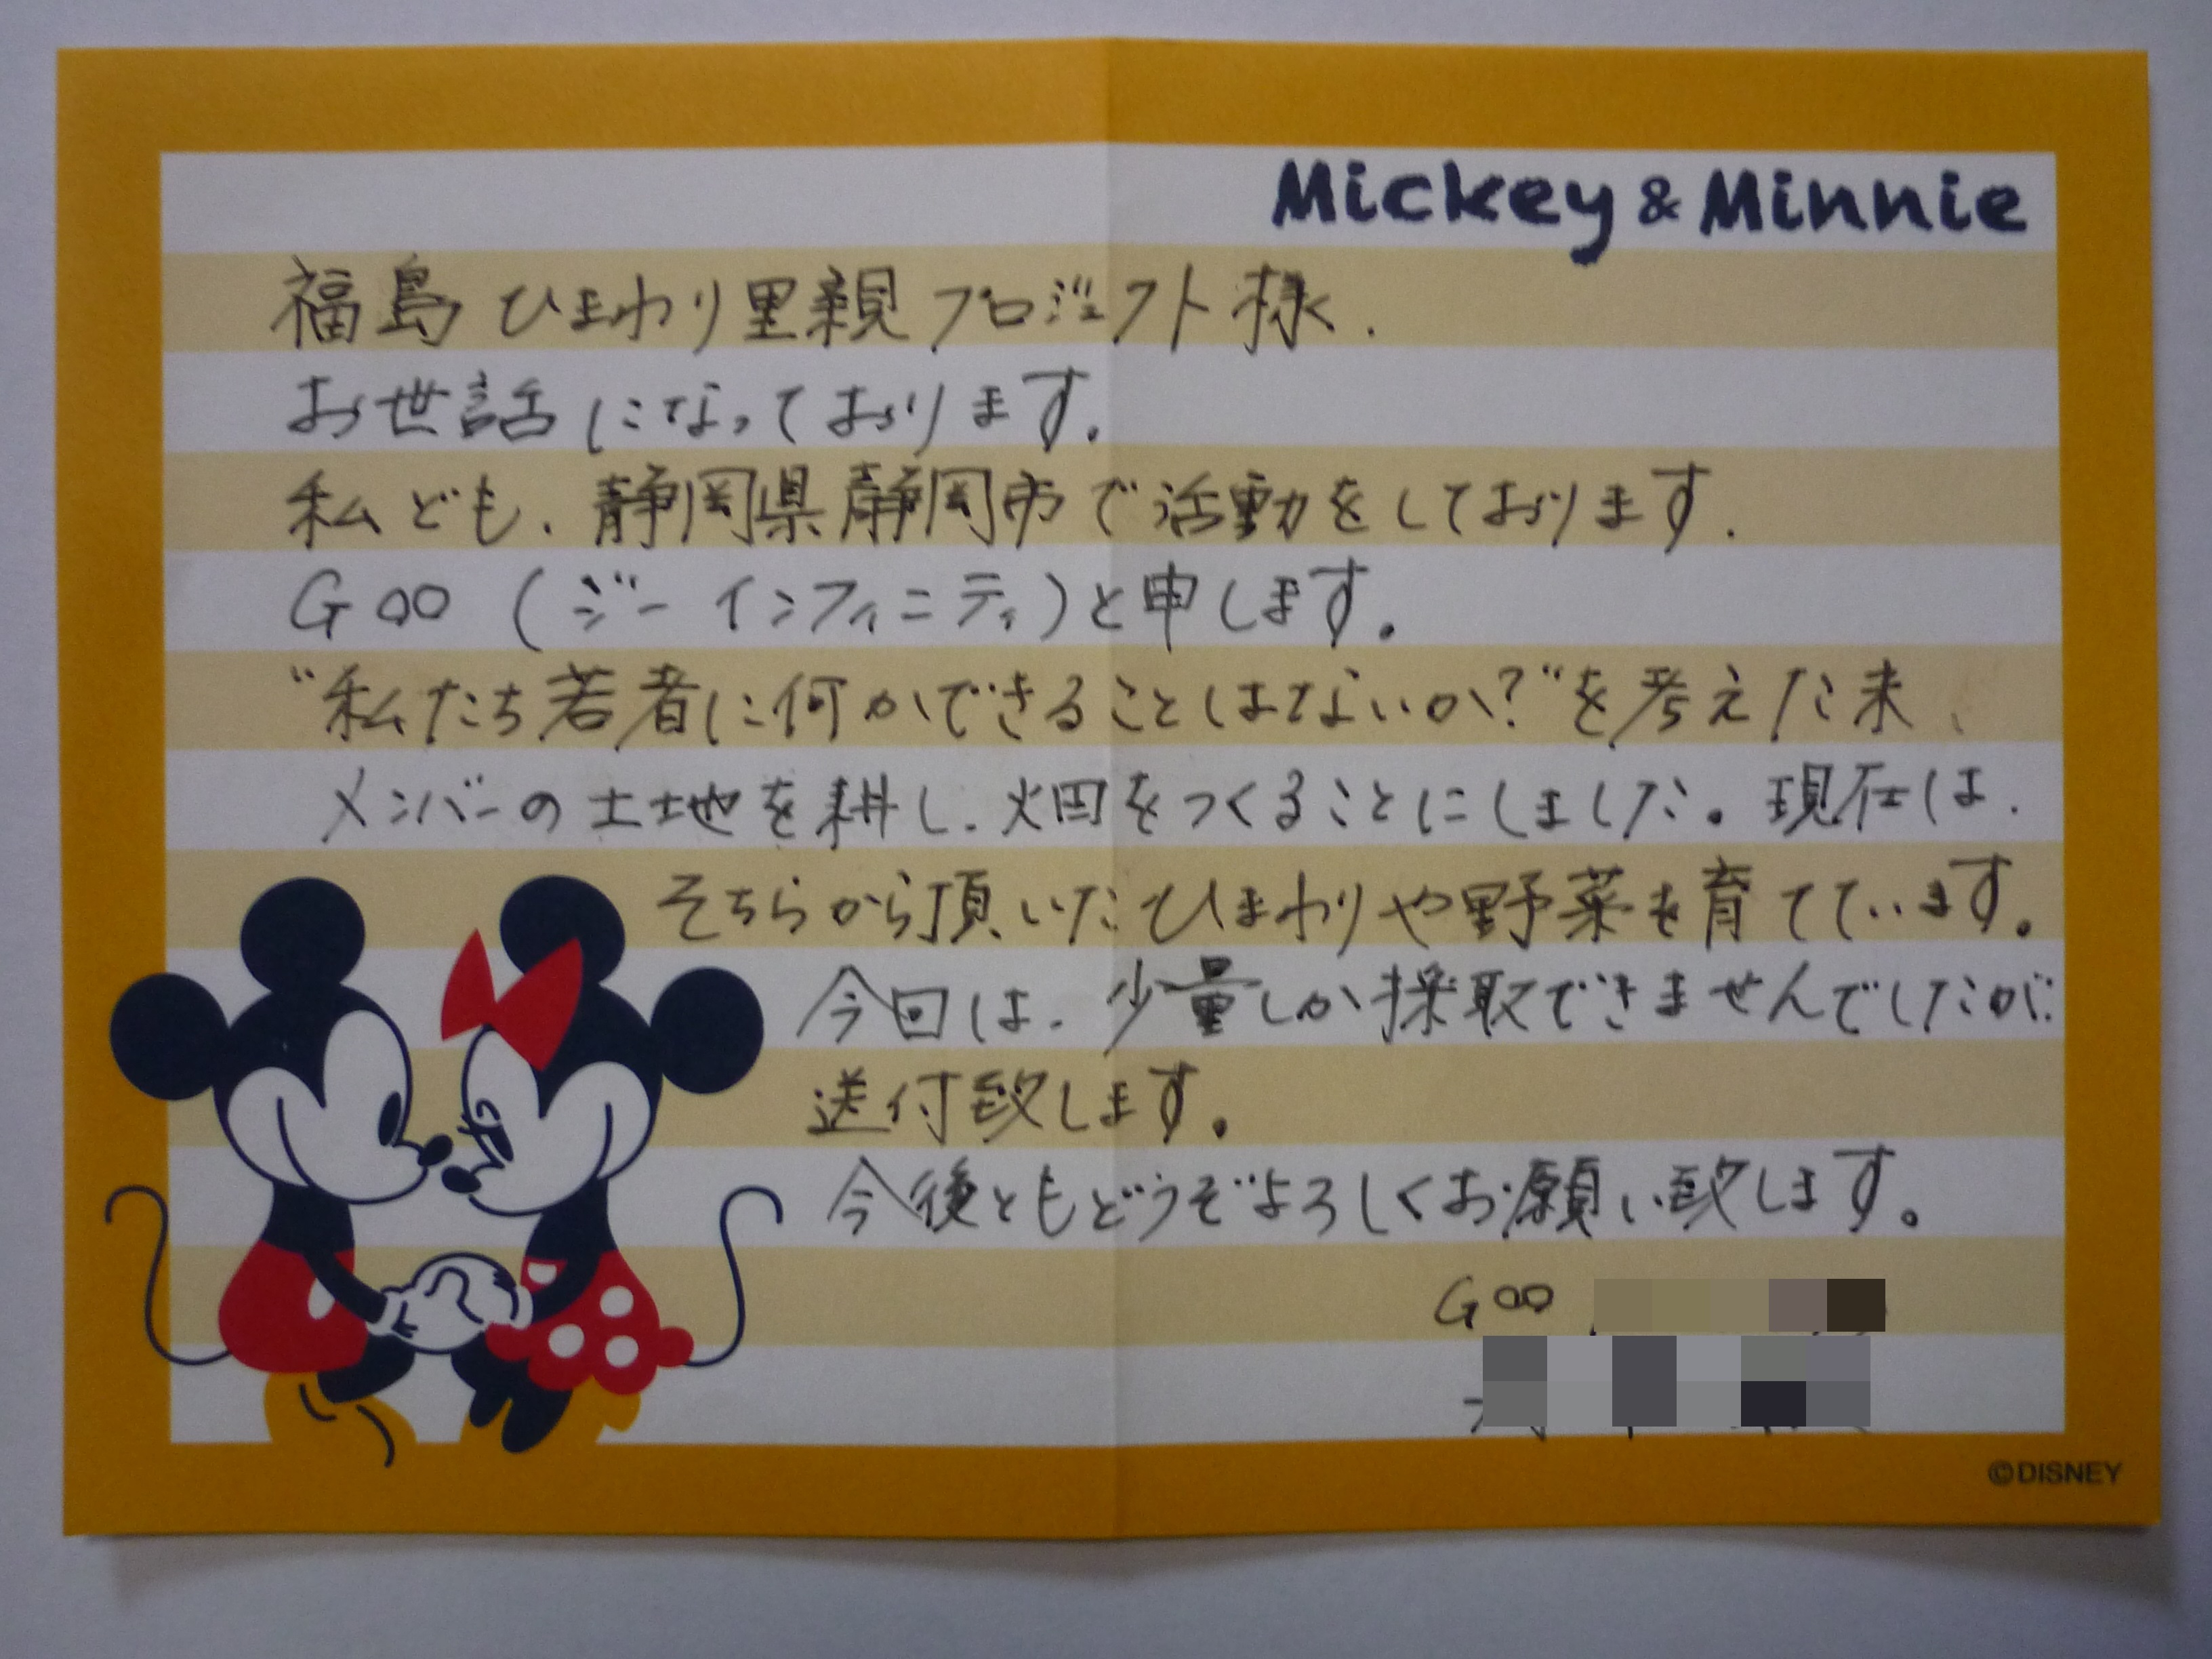 Mickey & Minnie
福島ひまわり里親プロジェクト様.
お世話になっております。
私ども、静岡県静岡市で活動をしております.
G∞ (ジーインフィニティ)と申します。
“私たち若者に何かできることはないか?”を考えた末、
メンバーの土地を耕し、畑をつくることにしました。現在は、
そちらから頂いたひまわりや野菜を育てています。
今回は、少量しか採取できませんでしたが、
送付致します。
今後ともどうぞよろしくお願い致します。
G∞
©DISNEY